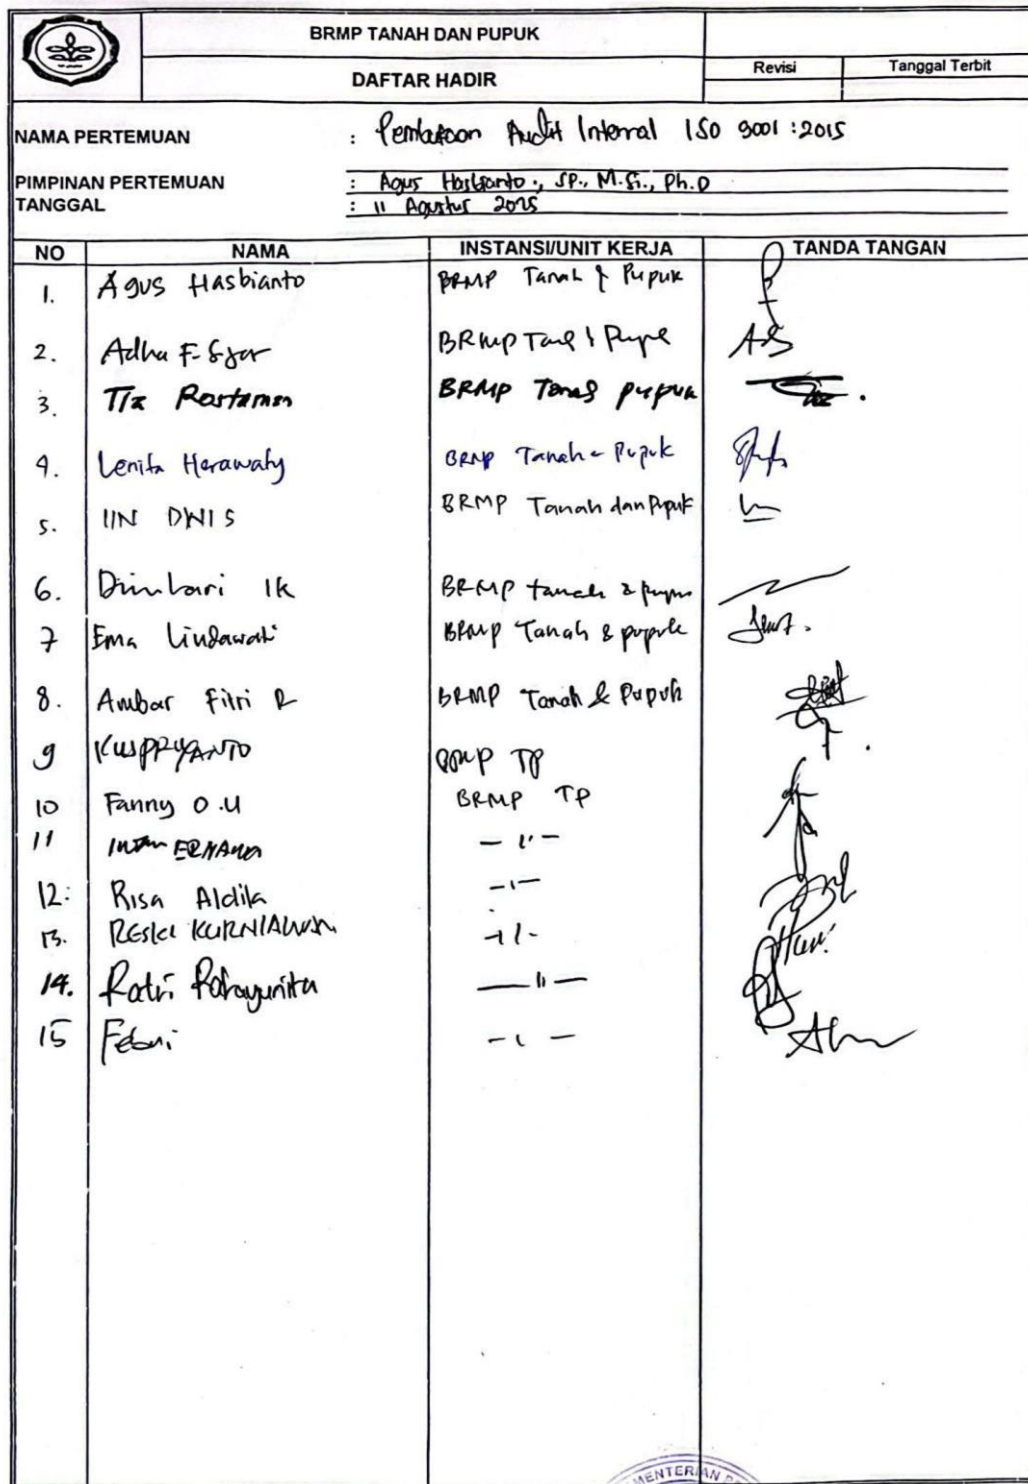 BRMP TANAH DAN PUPUK
DAFTAR HADIR
Revisi Tanggal Terbit
NAMA PERTEMUAN : Pembukaan Audit Internal ISO 9001:2015
PIMPINAN PERTEMUAN : Agus Hasbianto., SP., M.Si., Ph.D
TANGGAL : 11 Agustus 2025
NO NAMA INSTANSI/UNIT KERJA TANDA TANGAN
1. Agus Hasbianto BRMP Tanah & Pupuk
2. Adha F. BRMP
3. Tia Rostaman BRMP pupuk
4. Lenita Herawaty BRMP Tanah & Pupuk
5. IIN DWI S BRMP Tanah dan Pupuk
6. IK BRMP tanah &
7 Ema Lindawati BRMP Tanah & pupuk
8. Ambar Fitri R BRMP Tanah & Pupuk
9 KUSPRIYANTO BRMP TP
10 Fanny O.U BRMP TP
11 - 11 -
12. Risa Aldila - 11 -
13. RESKI KURNIAWAN - 11 -
14. Ratri - 11 -
15 Febri - 11 -
MENTERIAN